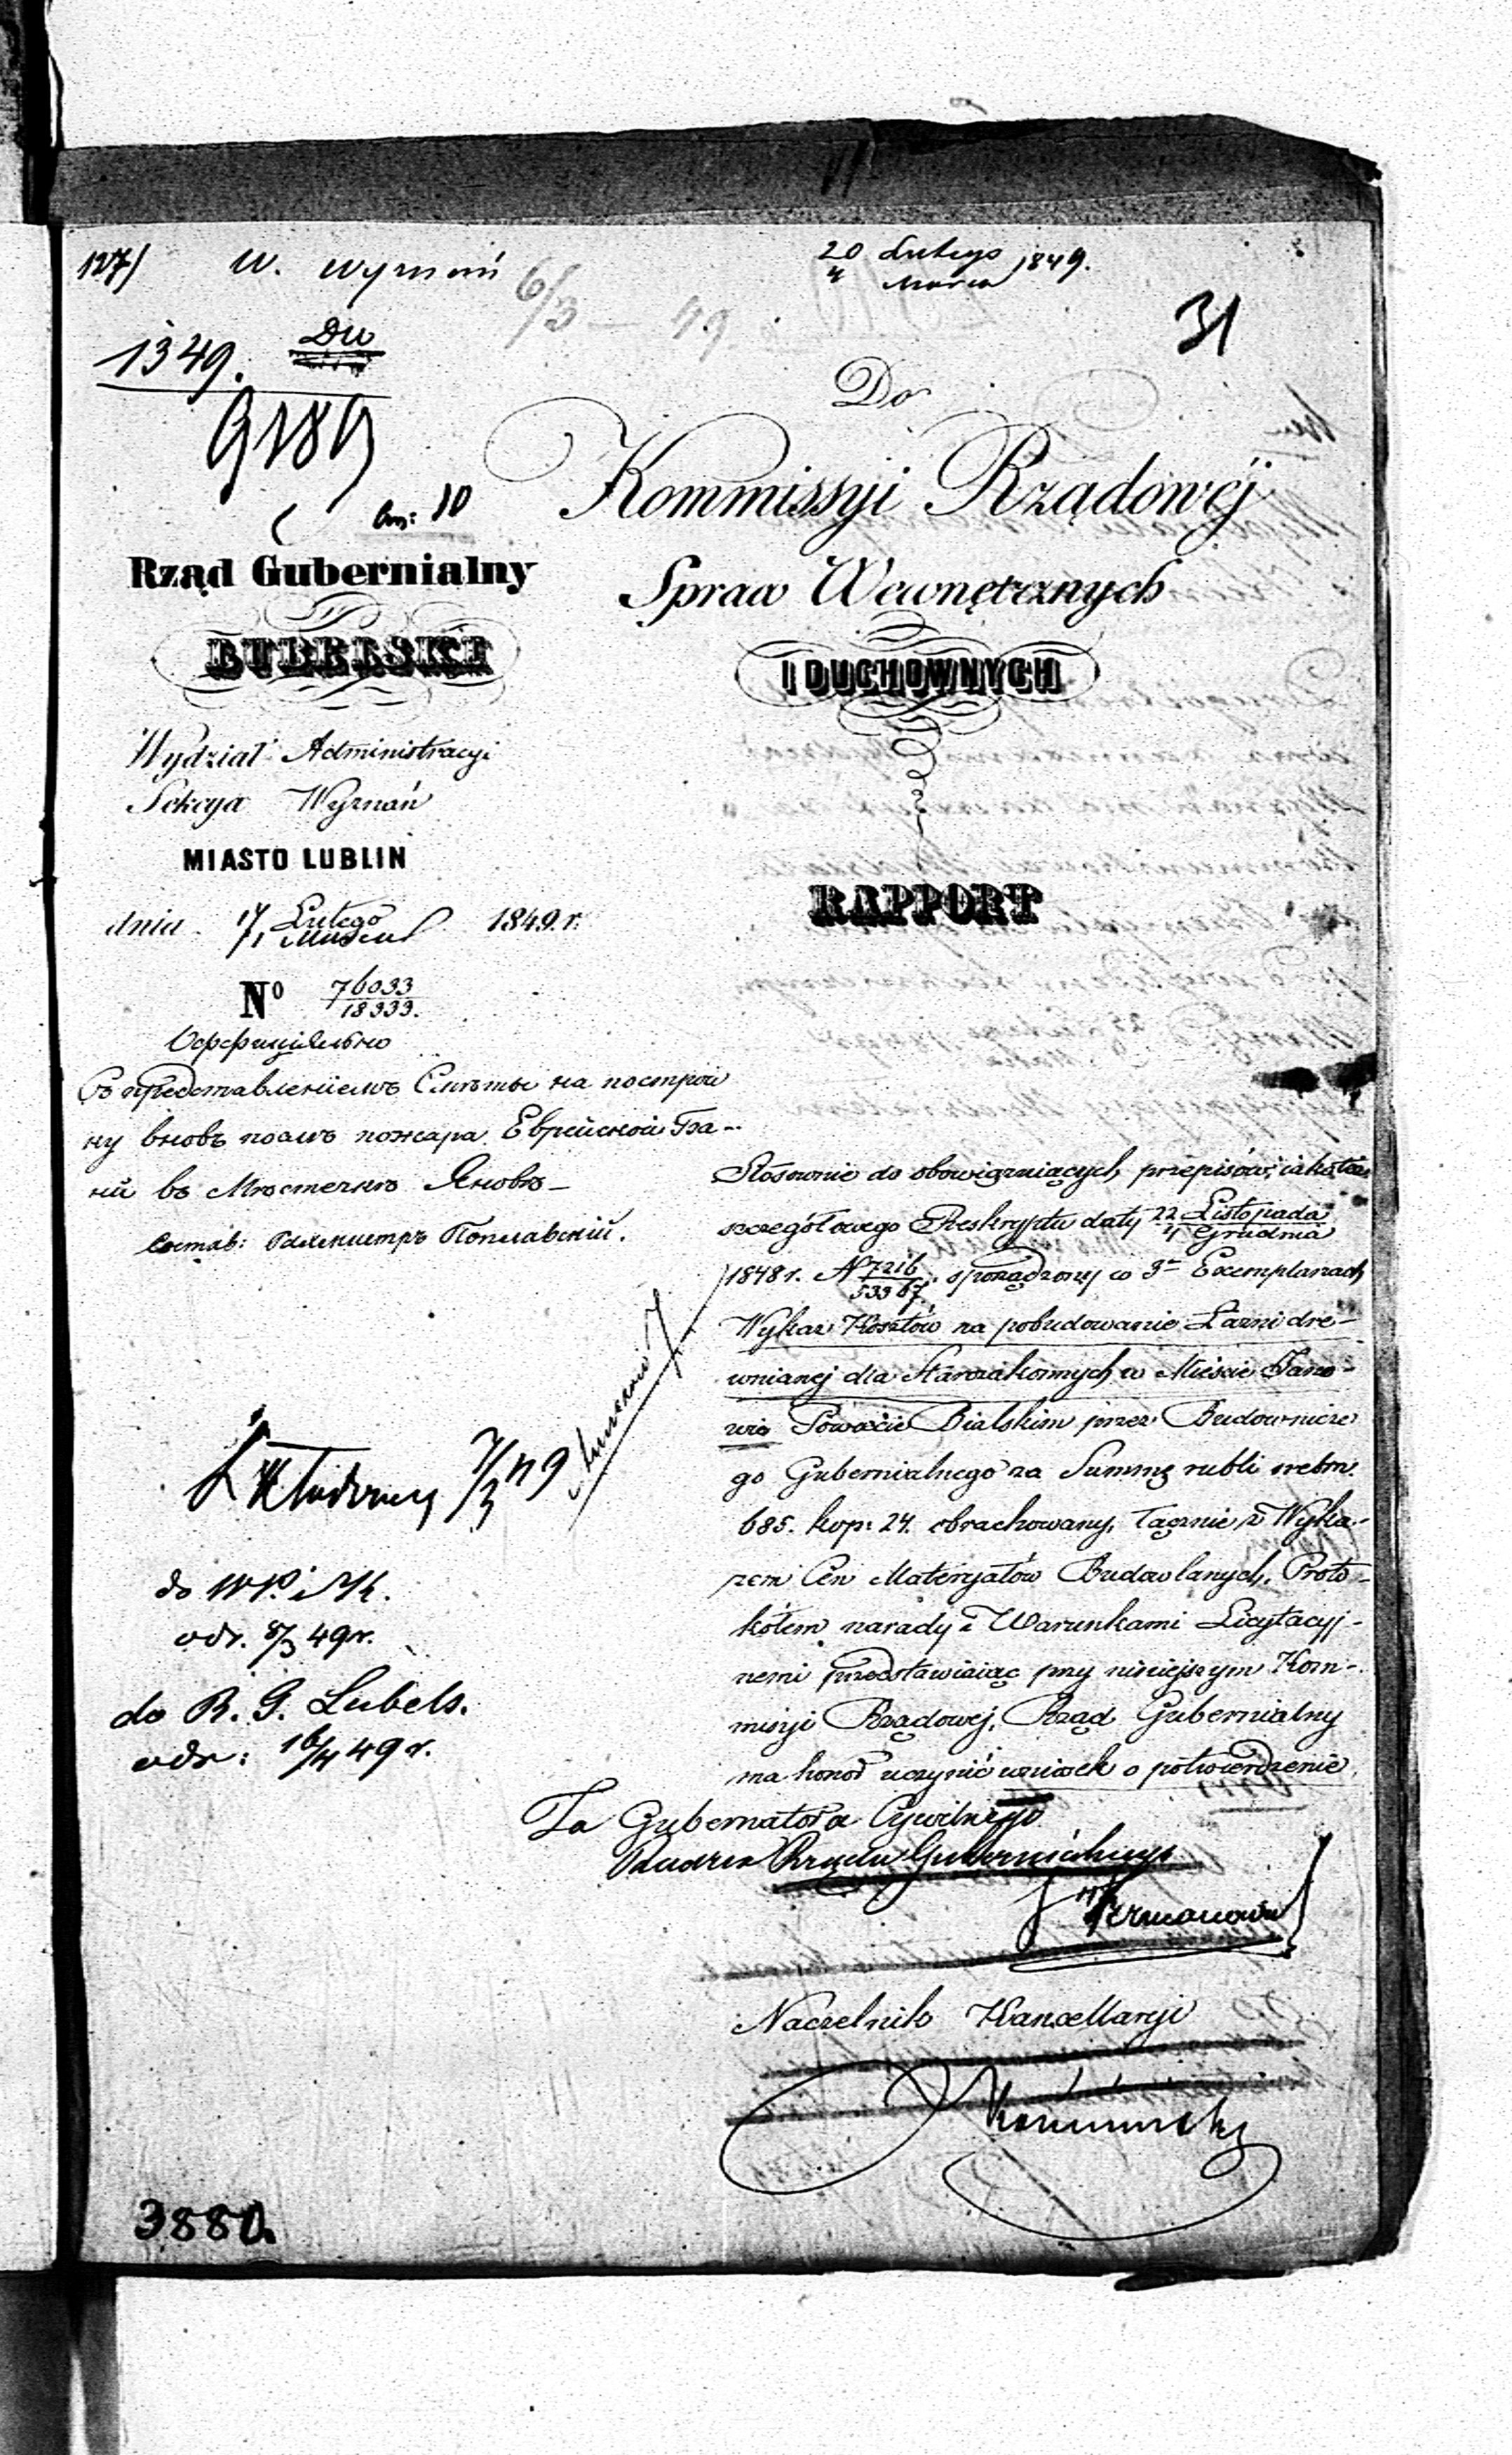 127)
W. Wyznań
20 Lutego
4 Marca 1849.
6/3 - 49
31
1349. DW
9189
An: 10
Do
Kommissyi Rządowéj
Spraw Wewnętrznych
I DUCHOWNYCH
RAPPORT
Rząd Gubernialny
LUBELSKI
Wydział Administracyi
Sekcya Wyznań
MIASTO LUBLIN
dnia 17/1 Lutego/Marca 1849. r.
Nº 76033/18333.
Съ представленіемъ Смѣты на построй
ку вновь послѣ пожара Еврейской Ба-
ни въ Мѣстечкѣ Яновѣ-
Состав: Поплавскій.
Stósownie do obowięzuiących przepisów, iako też
szczegółowego Reskryptu daty 22 Listopada/4 Grudnia
1848 r. N 7216/53367. sporządzony w 3ch Exemplarzach
Wykaz Kosztów na pobudowanie Łazni dre-
wnianej dla Starozakonnych w Mieście Jano-
wie Powiecie Bialskim przez Budownicze
go Gubernialnego na Summę rubli srebrn.
685. kop: 24. obrachowany, łącznie z Wyka-
zem Cen Materyałów Budowlanych, Proto-
kółem narady i Warunkami Licytacyj-
nemi przedstawiaiąc przy niniejszym Kom-
misyi Rządowej, Rząd Gubernialny
ma honor uczynić wniosek o potwierdzenie.
7/3 49
do W P. i K.
odr. 8/3 49 r.
do R. G. Lubels.
odr: 16/4 49 r.
Za Gubernatora Cywilnego
Radzca Rządu Gubernialnego
Naczelnik Kancellaryi
3880.